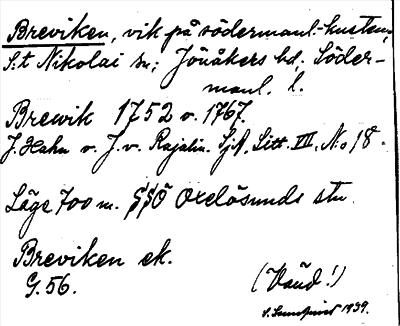 Breviken, vik på södermanl.-kusten,
S:t Nikolai sn; Jönåkers hd, Söder-
manl. l.
Brewik 1752 o. 1767.
J. Hahn o. J. v. Rajalin. Sjk, Litt. VII, No 18.
Läge 700 m. SSÖ Oxelösunds stn
Breviken ek.
G. 56.
(Vånd!)
S. Sundqvist 1939.